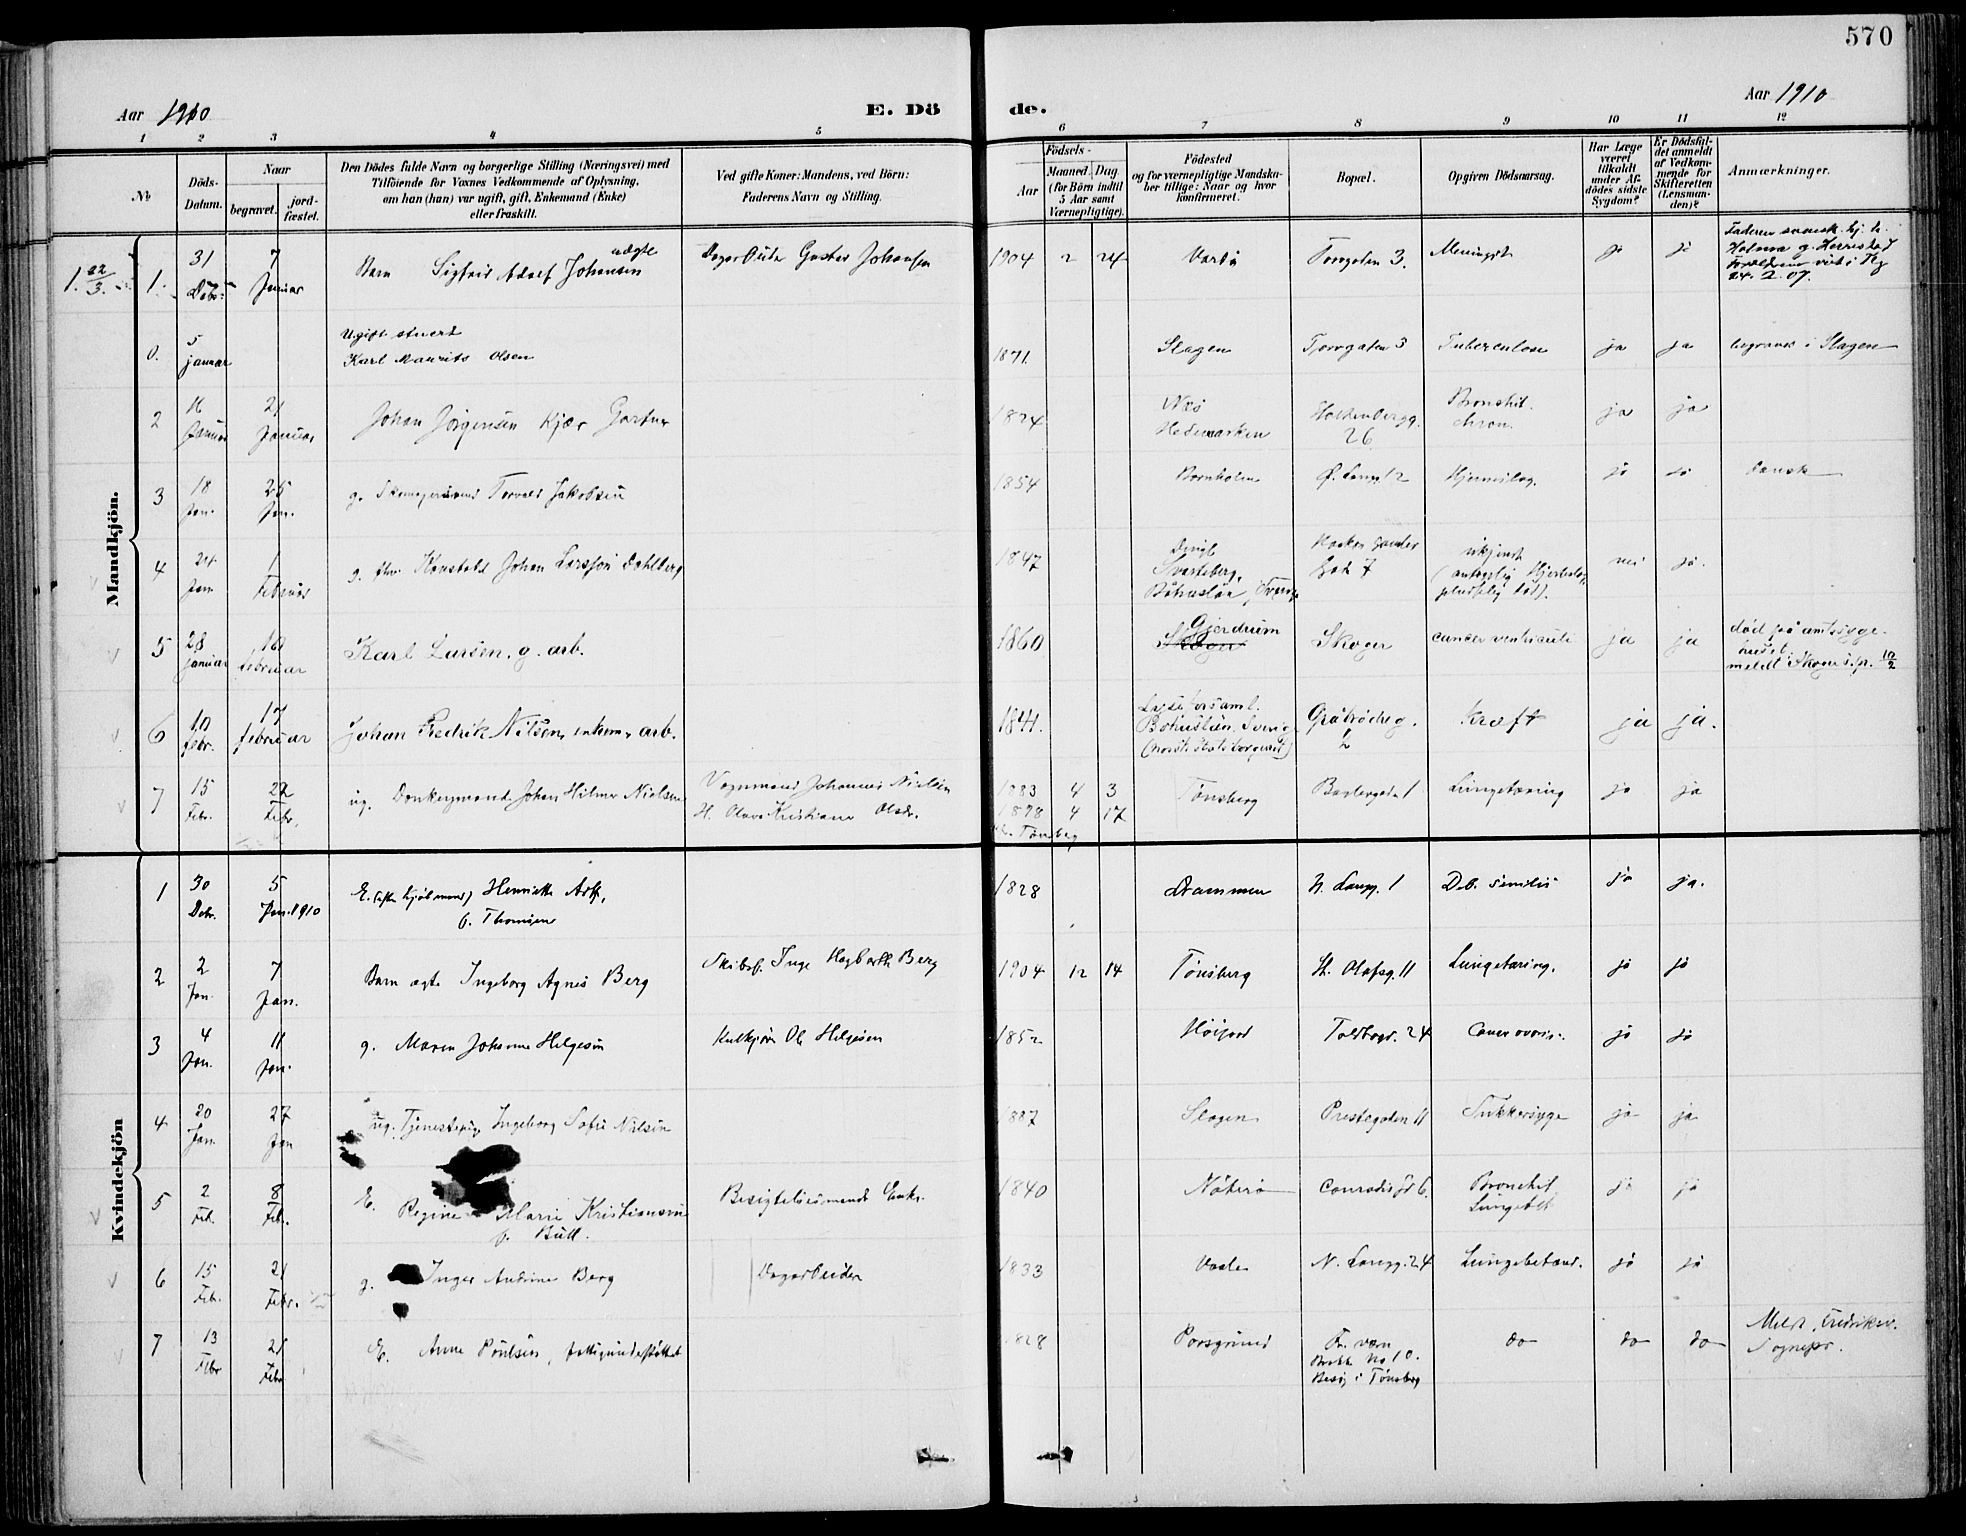 570
Aar 1910
E. Dö
de.
Aar 1910
1 2 3 4 5 6 7 8 9 10 11 12
№
Döds-
Datum.
Naar
begravet.
jord-
fæstet.
Den Dödes fulde Navn og borgerlige Stilling (Næringsvei) med
Tilföiende for Voxnes Vedkommende af Oplysning,
om han (hun) var ugift, gift, Enkemand (Enke)
eller fraskilt.
Ved gifte Koner: Mandens, ved Börn:
Faderens Navn og Stilling.
Födsels-
Aar
Maaned. Dag.
(for Börn indtil
5 Aar samt
Værnepligtige).
Födested
og for værnepligtige Mandska-
ber tillige: Naar og hvor
konfirmeret.
Bopæl.
Opgiven Dödsaarsag.
Har Læge
været
tilkaldt
under Af-
dödes sidste
Sygdom?
Er Dödsfal-
det anmeldt
af Vedkom-
mende for
Skifteretten
(Lensman-
den)?
Anmærkninger.
Mandkjön.
1. 22/3. 1. 31 Debr. 7 Januar Barn Sigfris Adolf Johansen uægte Dagarbeider Gustav Johansen 1904 2 24 Vardö Torvgaten 3. Meningit ja ja Faderen svensk
24. 2. 07.
0. 5 januar Ugift stuert
Karl Maurits Olsen 1871. Slagen Torvgaten 3 Tuberculose ja ja begravet i Slagen
2 16 Januar 21 Januar Johan Jörgensen Kjær Gartner 1824 Næs
Hedemarken 26 Bronchit.
chron. ja ja
3 18 Jan. 25 Jan. g. Torvald Jakobsen 1854 Bornholm Ø. Langg. 12 Hjerneslag. ja ja Dansk
4 24 Jan 1 Februar g. Konstabel Johan Larsson Dahlberg 1847 Svarteberg,
Båhuslän, Sverige 7 ukjendt
(antagelig Hjerteslag,
pludselig död). nei ja.
5 28 januar 10 februar Karl Larsen, g. arb. 1860 Gjerdrum
Skoger Skoger cancer ventriculi ja ja död på amtssyge-
huset.
meldt Skoger s.p. 10/2
6 10 febr. 17 februar Johan Fredrik Nilsen, enkem. arb. 1841. Bohuslän, Sverig
(norsk statsborgerret) Gråbrödreg.
2 Kræft ja ja.
7 15 Febr. 22 Febr. ug. Donkeymand Johan Hilmar Nielsen Vognmand Johannes Nielsen
H. Olava Kristiane Olsdr. 1883 4 3
1898 4 17
Tönsberg Tönsberg Lungetæring ja ja
Kvindekjön
1 30 Debr. 5 Jan. 1910 E. (efter kjöbmand) Henriette Asp,
f. Thomsen 1828 Drammen N. Langg. 1 Deb. senilis ja ja.
2 2 Jan. 7 Jan. Barn ægte Ingeborg Agnes Berg Skibsf. Inge Hagbarth Berg 1904 12 14 Tönsberg St. Olafsg. 11 Lungetæring. ja ja
3 4 Jan. 11 Jan. g. Maren Johanne Helgesen Ole Helgesen 1852 Toldbogt. 24 Cancer ovarii. ja ja
4 20 Jan. 27 Jan ug. Tjenestepige Ingeborg Sofie Nielsen 1887 Slagen Prestegaten 11 Sukkersyge ja ja
5 2 Feb. 8 Feb. E. Regine Marie Kristiansen
f. Bull. Besigtelsesmands Enke. 1840 Nöterö Conradis gt 6. Bronchit
ja ja
6 15 Feb. 21 Febr. g. Inger Andrine Berg Dagarbeider 1833 Vaale N. Langg. 24 Lungebetænd. ja ja
7 13 Febr 21 Febr E. Anne Poulsen, fattigunderstöttet 1828 Porsgrund No 10.
Besög i Tönsberg do do do Meldt Fredriksv.
Sognepr.